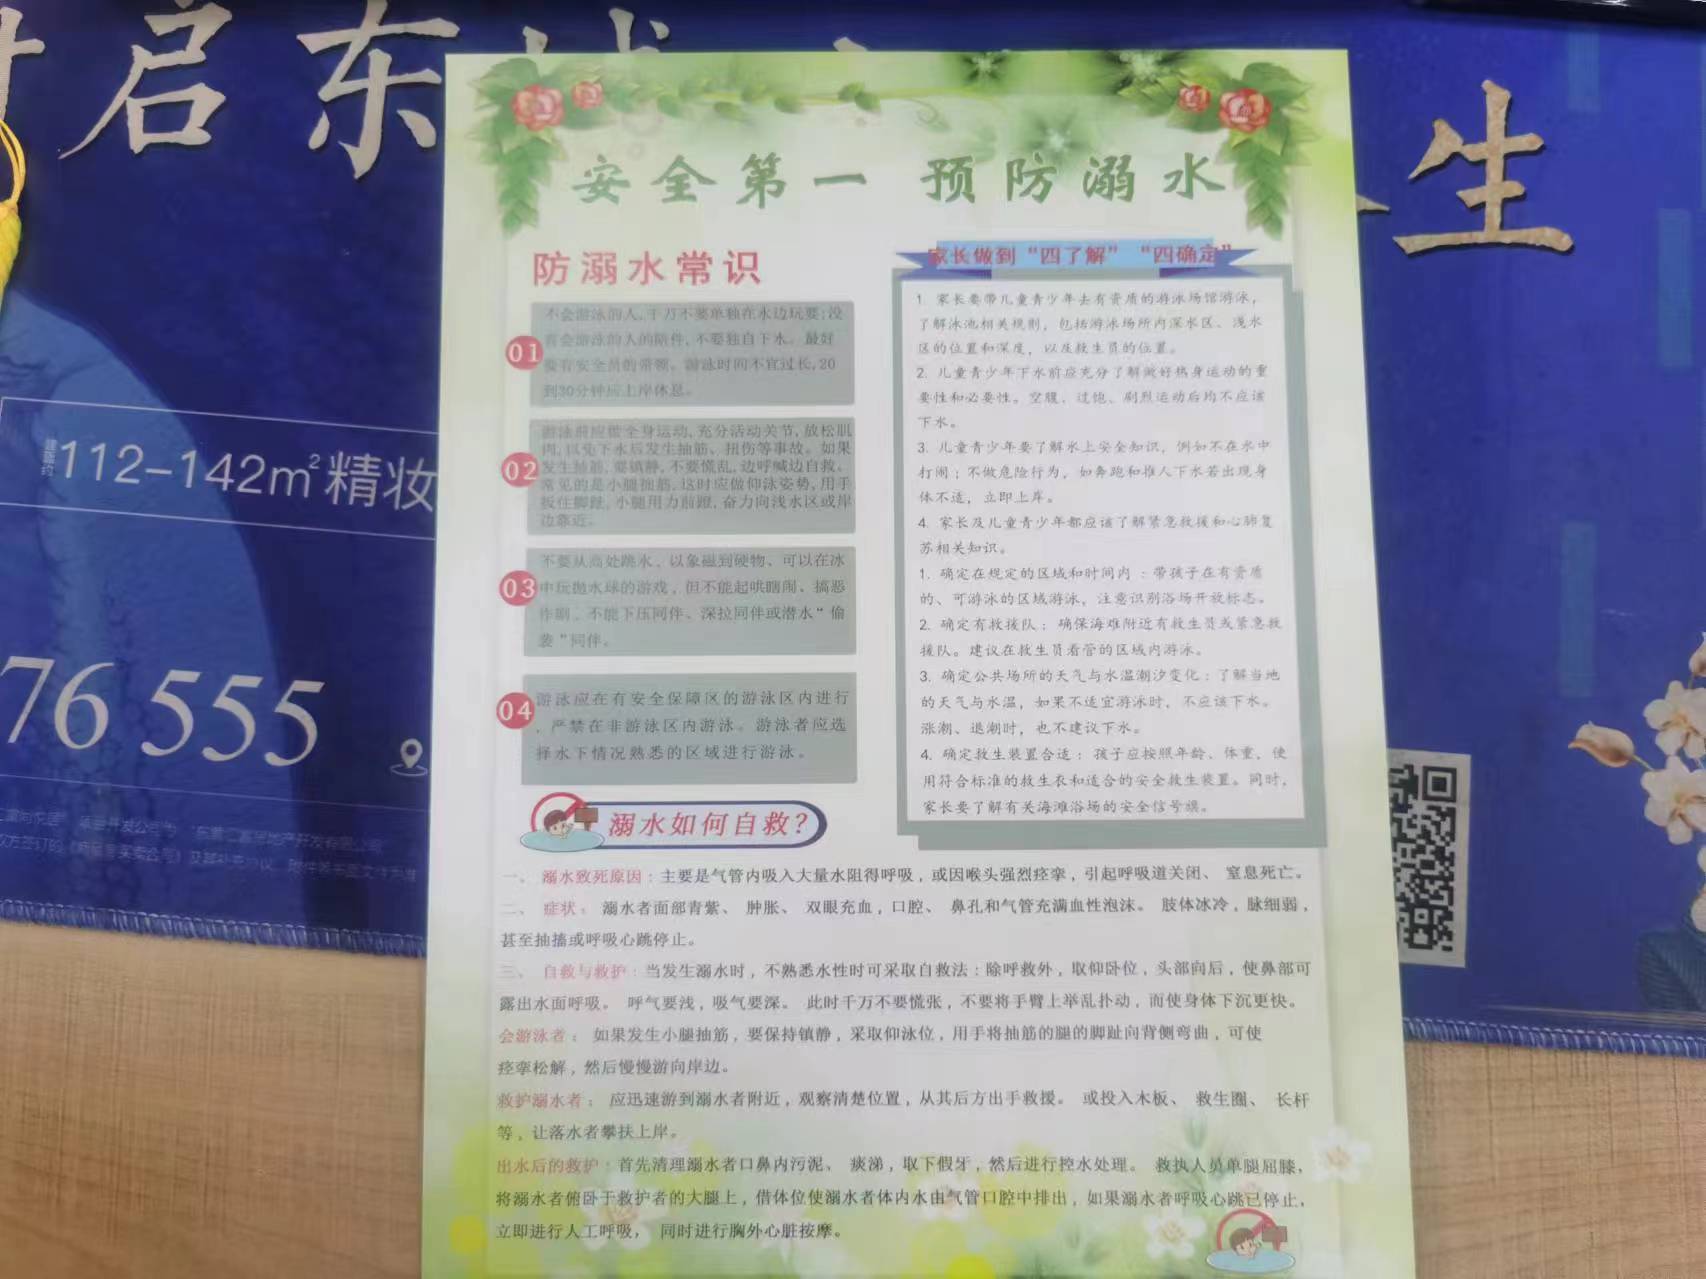 启东
生
112-142m²精妆
76 555
安全第一 预防溺水
防溺水常识
01
不会游泳的人,千万不要单独在水边玩耍;没
有会游泳的人的陪伴,不要独自下水。最好
要有安全员的带领。游泳时间不宜过长,20
到30分钟应上岸休息。
02
游泳前应做全身运动,充分活动关节,放松肌
肉,以免下水后发生抽筋、扭伤等事故。如果
发生抽筋,要镇静,不要慌乱,边呼喊边自救。
常见的是小腿抽筋,这时应做仰泳姿势,用手
扳住脚趾,小腿用力前蹬,奋力向浅水区或岸
边靠近。
03
不要从高处跳水,以象磁到硬物、可以在冰
中玩抛水球的游戏,但不能起哄瞎闹、搞恶
作剧,不能下压同伴、深拉同伴或潜水“偷
袭”同伴。
04
游泳应在有安全保障区的游泳区内进行
,严禁在非游泳区内游泳。游泳者应选
择水下情况熟悉的区域进行游泳。
家长做到“四了解”“四确定”
1. 家长要带儿童青少年去有资质的游泳场馆游泳,
了解泳池相关规则,包括游泳场所内深水区、浅水
区的位置和深度,以及救生员的位置。
2. 儿童青少年下水前应充分了解做好热身运动的重
要性和必要性。空腹、过饱、剧烈运动后均不应该
下水。
3. 儿童青少年要了解水上安全知识,例如不在水中
打闹;不做危险行为,如奔跑和推人下水若出现身
体不适,立即上岸。
4. 家长及儿童青少年都应该了解紧急救援和心肺复
苏相关知识。
1. 确定在规定的区域和时间内:带孩子在有资质
的、可游泳的区域游泳,注意识别浴场开放标志。
2. 确定有救援队:确保海难附近有救生员或紧急救
援队。建议在救生员看管的区域内游泳。
3. 确定公共场所的天气与水温潮汐变化:了解当地
的天气与水温,如果不适宜游泳时,不应该下水。
涨潮、退潮时,也不建议下水。
4. 确定救生装置合适:孩子应按照年龄、体重,使
用符合标准的救生衣和适合的安全救生装置。同时,
家长要了解有关海滩浴场的安全信号旗。
溺水如何自救?
一、溺水致死原因:主要是气管内吸入大量水阻得呼吸,或因喉头强烈痉挛,引起呼吸道关闭、窒息死亡。
二、症状:溺水者面部青紫、肿胀、双眼充血,口腔、鼻孔和气管充满血性泡沫。肢体冰冷,脉细弱,
甚至抽搐或呼吸心跳停止。
三、自救与救护:当发生溺水时,不熟悉水性时可采取自救法:除呼救外,取仰卧位,头部向后,使鼻部可
露出水面呼吸。呼气要浅,吸气要深。此时千万不要慌张,不要将手臂上举乱扑动,而使身体下沉更快。
会游泳者:如果发生小腿抽筋,要保持镇静,采取仰泳位,用手将抽筋的腿的脚趾向背侧弯曲,可使
痉挛松解,然后慢慢游向岸边。
救护溺水者:应迅速游到溺水者附近,观察清楚位置,从其后方出手救援。或投入木板、救生圈、长杆
等,让落水者攀扶上岸。
出水后的救护:首先清理溺水者口鼻内污泥、痰涕,取下假牙,然后进行控水处理。救执人员单腿屈膝,
将溺水者俯卧于救护者的大腿上,借体位使溺水者体内水由气管口腔中排出,如果溺水者呼吸心跳已停止,
立即进行人工呼吸,同时进行胸外心脏按摩。